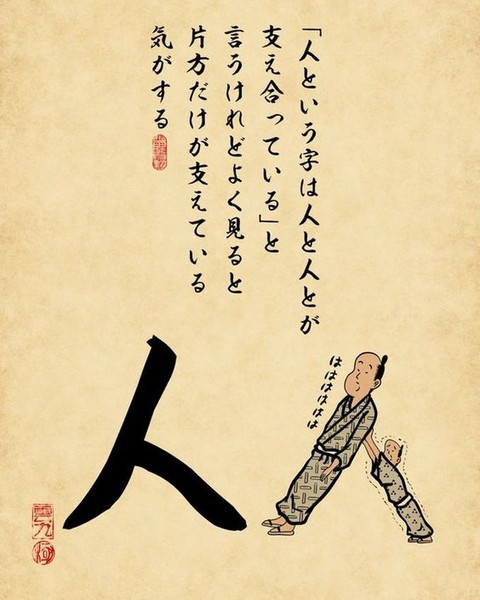 「人という字は人と人とが
支え合っている」と
言うけれどよく見ると
片方だけが支えている
気がする
はははははは
人